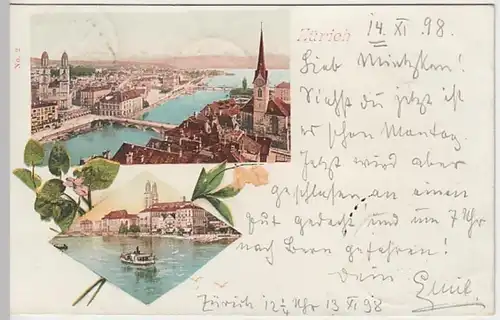 No. 2
Zürich
14. XI 98.
Lieb
Siehst du jetzt ist
es schon Montag.
Jetzt wird aber
geschlafen an einen
gut gedacht und um 7 Uhr
nach Bern gefahren!
Dein Emil
Zürich 12¼ Uhr 13 XI 98